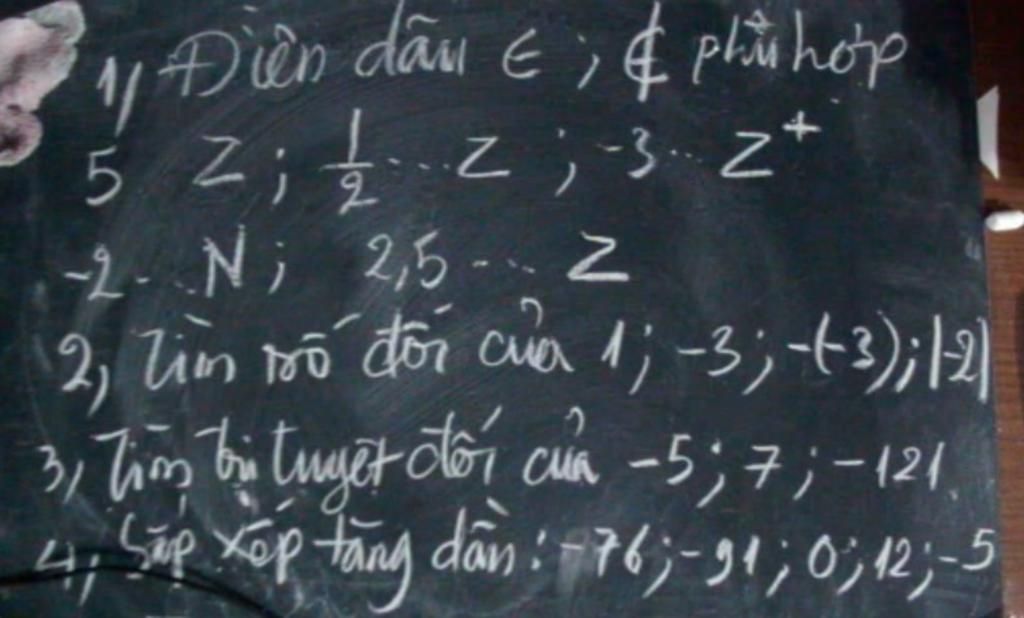 1, Điền dấu ∈ ; ∉ phù hợp
5 Z ; 1/2 ... Z ; -3 ... Z⁺
-2 ... N ; 2,5 ... Z
2, Tìm số đối của 1 ; -3 ; -(-3) ; |-2|
3, Tìm trị tuyệt đối của -5 ; 7 ; -121
4, Sắp xếp tăng dần : -76 ; -91 ; 0 ; 12 ; -5